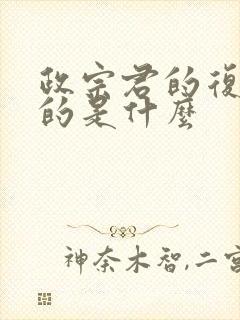 政宗君的復
的是什麼
神奈木智,二宮